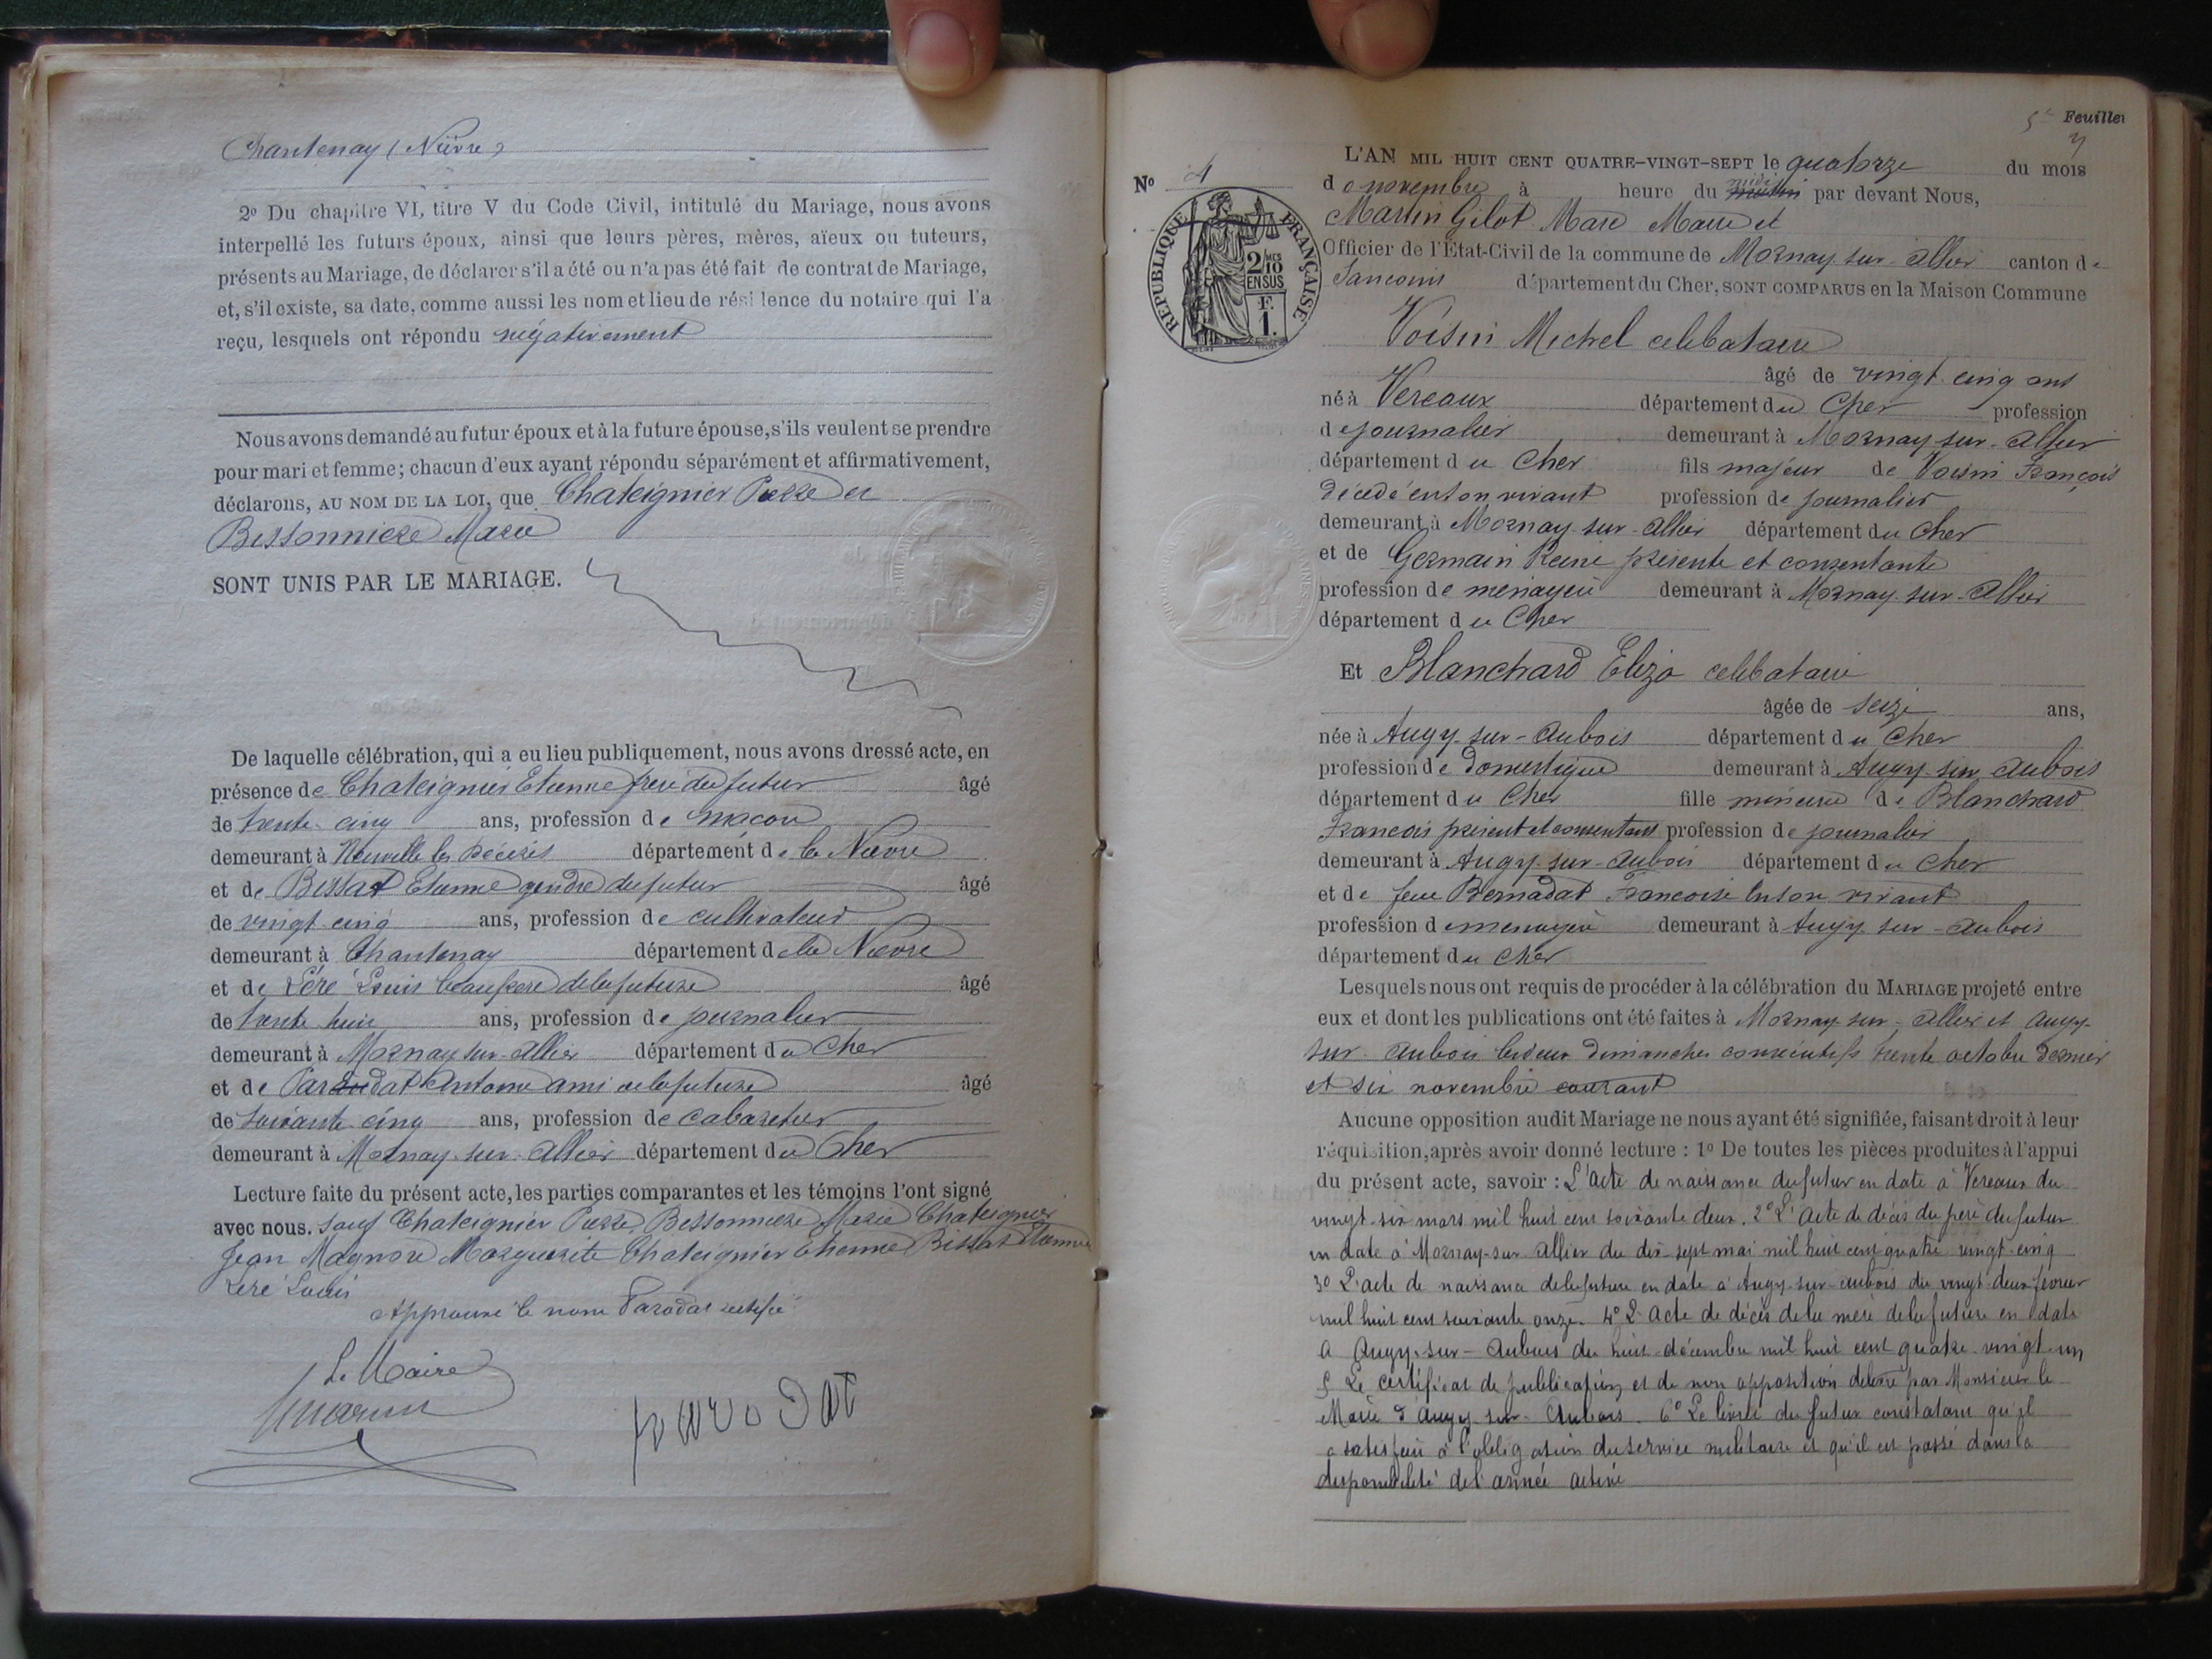 Chantenay (Nièvre)
2º Du chapitre VI, titre V du Code Civil, intitulé du Mariage, nous avons
interpellé les futurs époux, ainsi que leurs pères, mères, aïeux ou tuteurs,
présents au Mariage, de déclarer s'il a été ou n'a pas été fait de contrat de Mariage,
et, s'il existe, sa date, comme aussi les nom et lieu de résidence du notaire qui l'a
reçu, lesquels ont répondu négativement
Nous avons demandé au futur époux et à la future épouse, s'ils veulent se prendre
pour mari et femme; chacun d'eux ayant répondu séparément et affirmativement,
déclarons, AU NOM DE LA LOI, que Chateignier Pierre et
Bessonniere Marie
SONT UNIS PAR LE MARIAGE.
De laquelle célébration, qui a eu lieu publiquement, nous avons dressé acte, en
présence de Chateignier Etienne frere du futur âgé
de trente cinq ans, profession de macon
demeurant à Neuville les Decizes département de la Nievre
et de Bissat Etienne gendre du futur âgé
de vingt cinq ans, profession de cultivateur
demeurant à Chantenay département de la Nievre
et de Léré Louis beau pere de la future âgé
de trente huit ans, profession de journalier
demeurant à Mornay sur Allier département du Cher
et de Parodat Antoine ami de la future âgé
de soixante cinq ans, profession de cabaretier
demeurant à Mornay sur Allier département du Cher
Lecture faite du présent acte, les parties comparantes et les témoins l'ont signé
avec nous. sauf Chateignier Pierre, Bessonniere Marie Chateignier
Jean Magnon Marguerite Chateignier Etienne Bissat Etienne
Léré Louis
Approuvé le nom Parodat rectifié
Le Maire
parodat
5e Feuillet
Nº 4
L'AN MIL HUIT CENT QUATRE-VINGT-SEPT le quatorze du mois
de novembre à heure du midi matin par devant Nous,
Martin Gilot Marc Maire et
Officier de l'État-Civil de la commune de Mornay-sur-Allier canton de
Sancoins département du Cher, SONT COMPARUS en la Maison Commune
RÉPUBLIQUE FRANÇAISE
2/10 MES
EN SUS
F.
1.
Voisin Michel celibataire
âgé de vingt cinq ans
né à Vereaux département du Cher profession
de journalier demeurant à Mornay-sur-Allier
département du Cher fils majeur de Voisin François
décédé en son vivant profession de journalier
demeurant à Mornay-sur-Allier département du Cher
et de Germain Reine présente et consentante
profession de menagere demeurant à Mornay-sur-Allier
département du Cher
Et Blanchard Eliza celibataire
âgée de seize ans,
née à Augy-sur-Aubois département du Cher
profession de domestique demeurant à Augy sur Aubois
département du Cher fille mineure de Blanchard
François présent et consentant profession de journalier
demeurant à Augy-sur-Aubois département du Cher
et de feue Bernadat Francoise en son vivant
profession de menagere demeurant à Augy sur-Aubois
département du Cher
Lesquels nous ont requis de procéder à la célébration du MARIAGE projeté entre
eux et dont les publications ont été faites à Mornay-sur-Allier et Augy-
sur-Aubois les deux dimanches consécutifs trente octobre dernier
et six novembre courant
Aucune opposition audit Mariage ne nous ayant été signifiée, faisant droit à leur
réquisition, après avoir donné lecture : 1º De toutes les pièces produites à l'appui
du présent acte, savoir : L'acte de naissance du futur en date à Vereaux du
vingt-six mars mil huit cent soixante deux. 2º L'acte de décès du père du futur
en date à Mornay-sur-Allier du dix-sept mai mil huit cent quatre vingt-cinq
3º L'acte de naissance de la future en date à Augy-sur-Aubois du vingt-deux fevrier
mil huit cent soixante onze. 4º L'acte de décès de la mère de la future en date
à Augy-sur-Aubois du huit décembre mil huit cent quatre-vingt-un
5 Le certificat de publication et de non opposition délivré par Monsieur le
Maire d'Augy-sur-Aubois. 6º Le livret du futur constatant qu'il
a satisfait à l'obligation du service militaire et qu'il est passé dans la
disponibilité de l'armée active